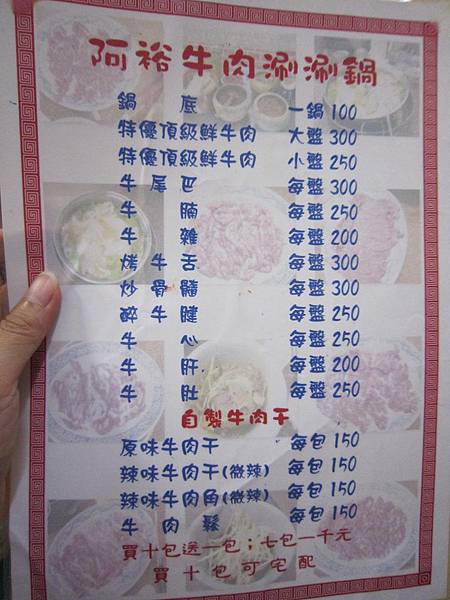 阿裕牛肉涮涮鍋
鍋底 一鍋 100
特優頂級鮮牛肉 大盤 300
特優頂級鮮牛肉 小盤 250
牛尾巴 每盤 300
牛腩 每盤 250
牛雜 每盤 200
烤牛舌 每盤 300
炒骨髓 每盤 300
醉牛腱 每盤 250
牛心 每盤 250
牛肝 每盤 200
牛肚 每盤 250
自製牛肉干
原味牛肉干 每包 150
辣味牛肉干(微辣) 每包 150
辣味牛肉角(微辣) 每包 150
牛肉鬆 每包 150
買十包送一包；七包一千元
買十包可宅配